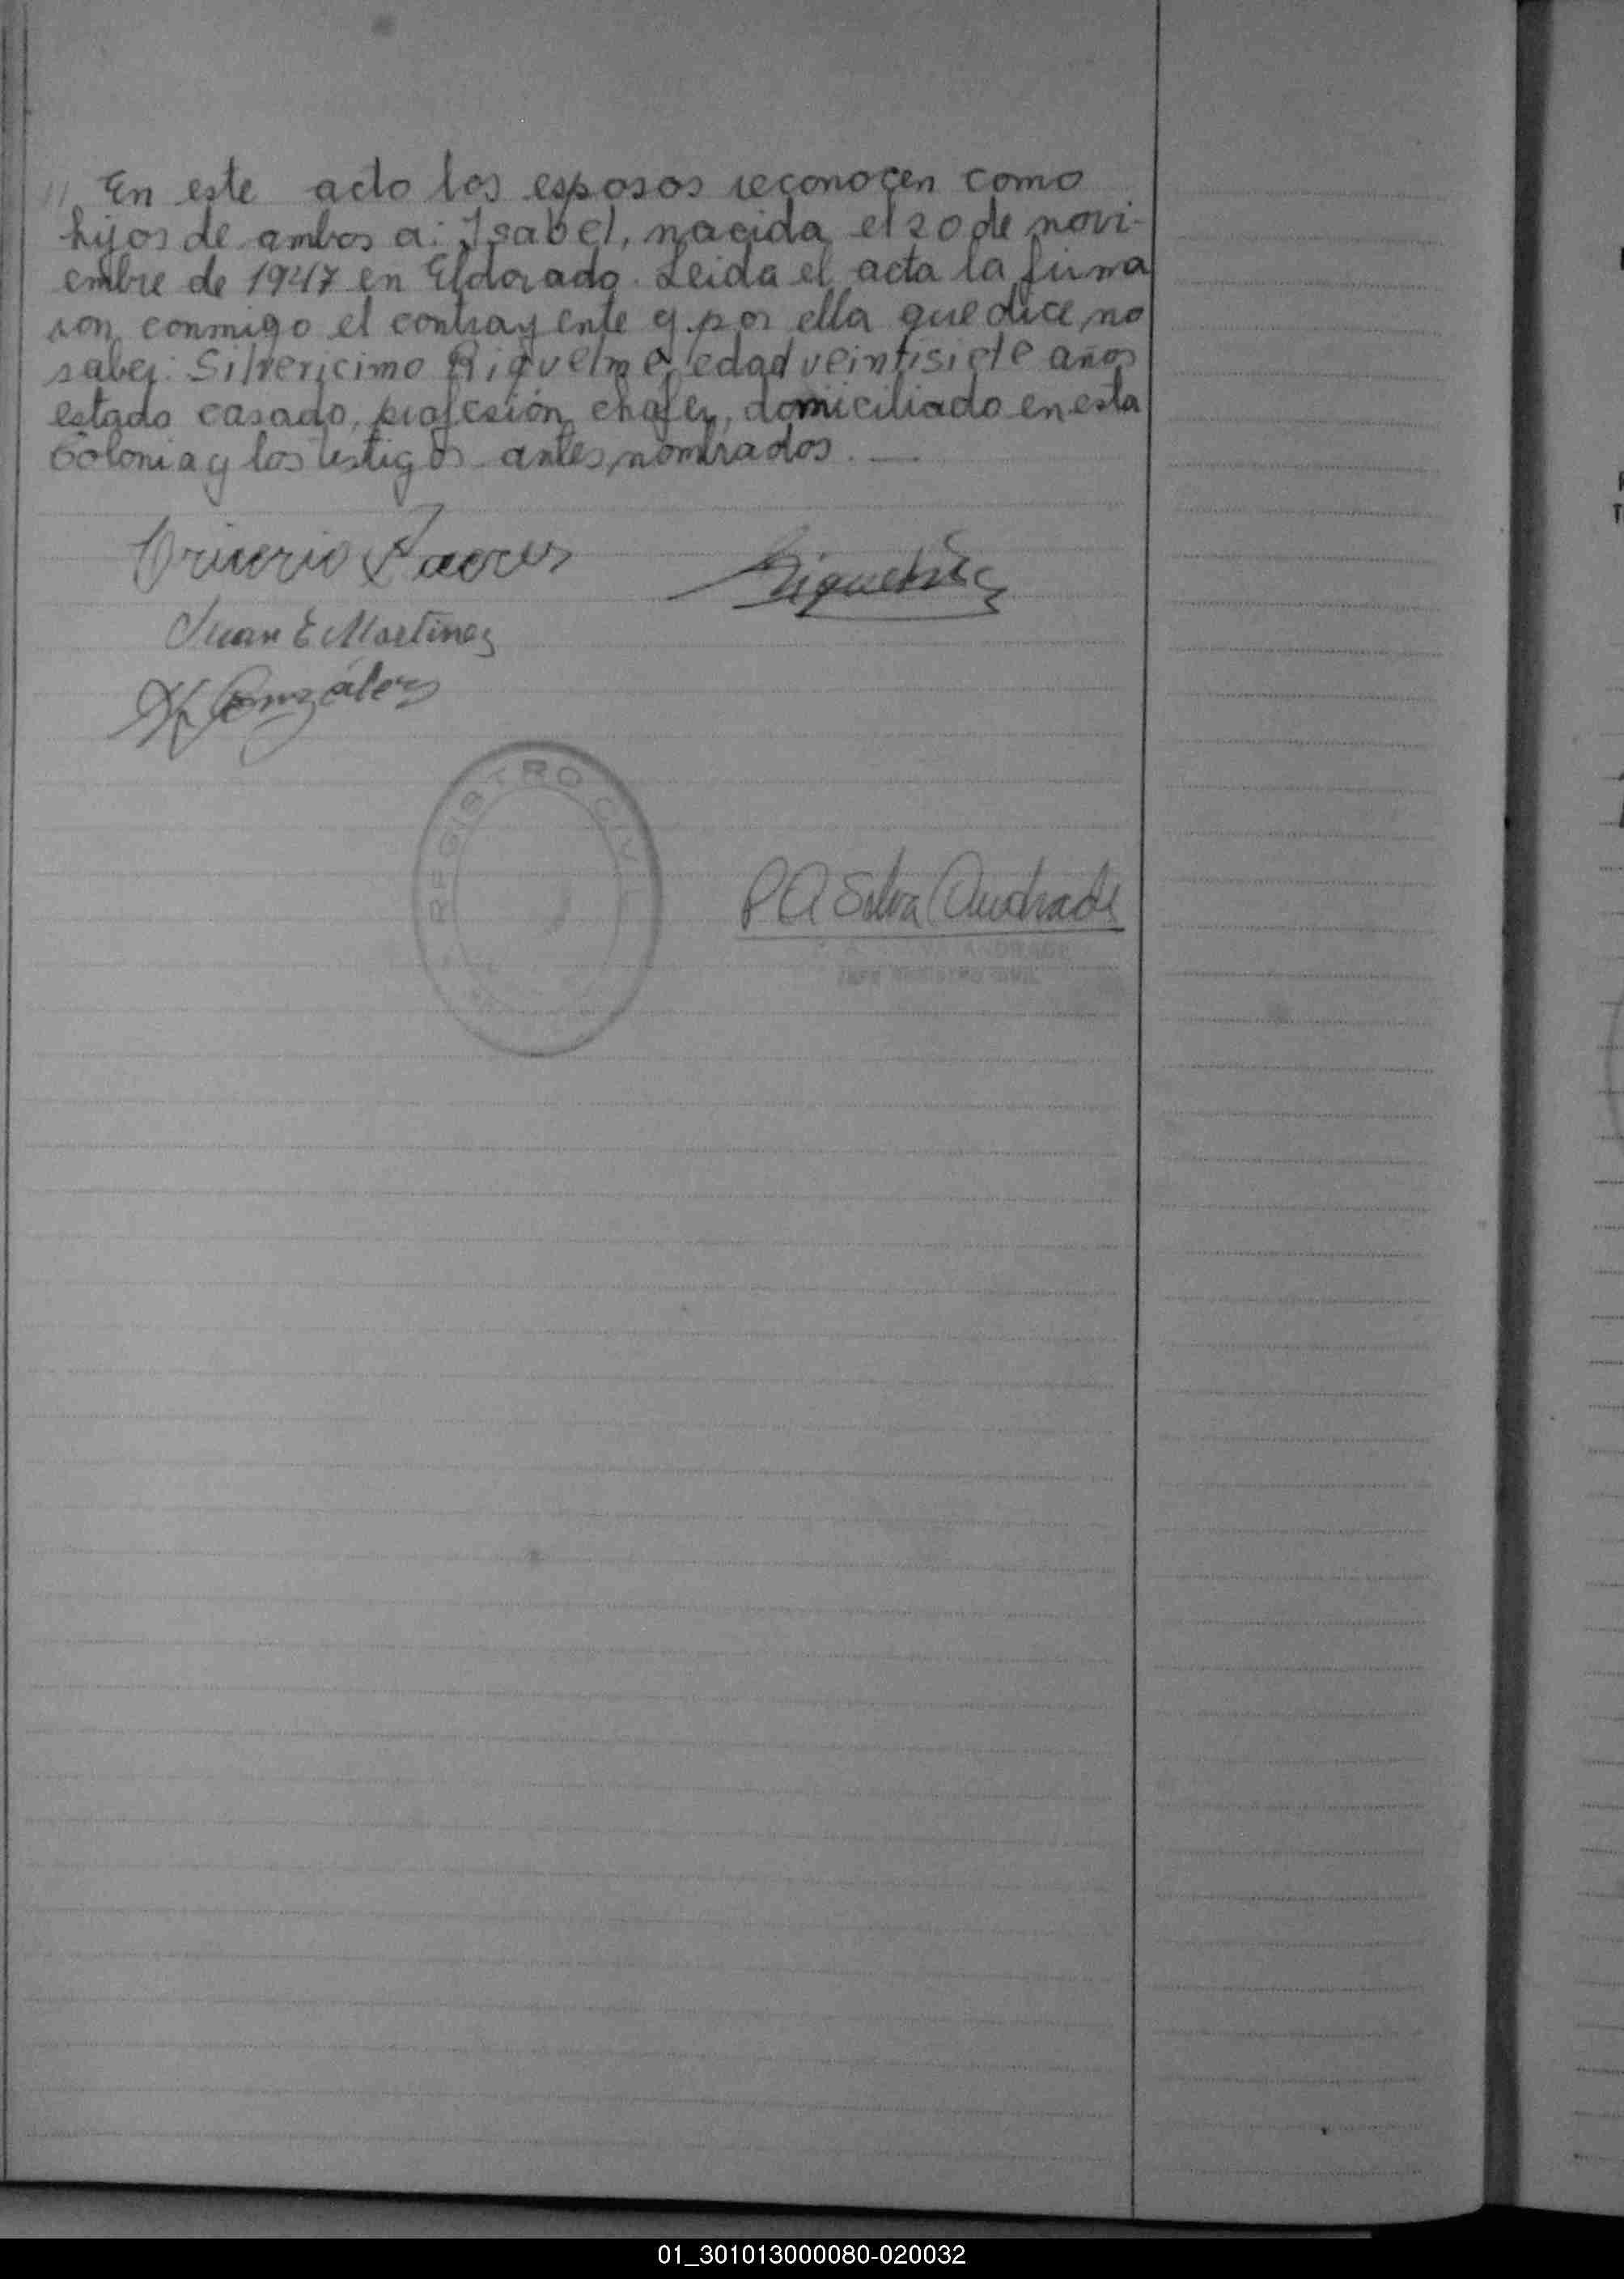 // En este acto los esposos reconocen como
hijos de ambos a: Isabel, nacida el 20 de novi-
embre de 1947 en Eldorado. Leida el acta la firma
ron conmigo el contrayente y por ella que dice no
saber: Silvericimo Riquelme, edad veintisiete años
estado casado, profesión chofer, domiciliado en esta
Colonia y los testigos antes nombrados. —
Riquelme
Juan E Martinez
González
REGISTRO CIVIL
P A Silva Andrade
P. A. SILVA ANDRADE
JEFE REGISTRO CIVIL
01_301013000080-020032